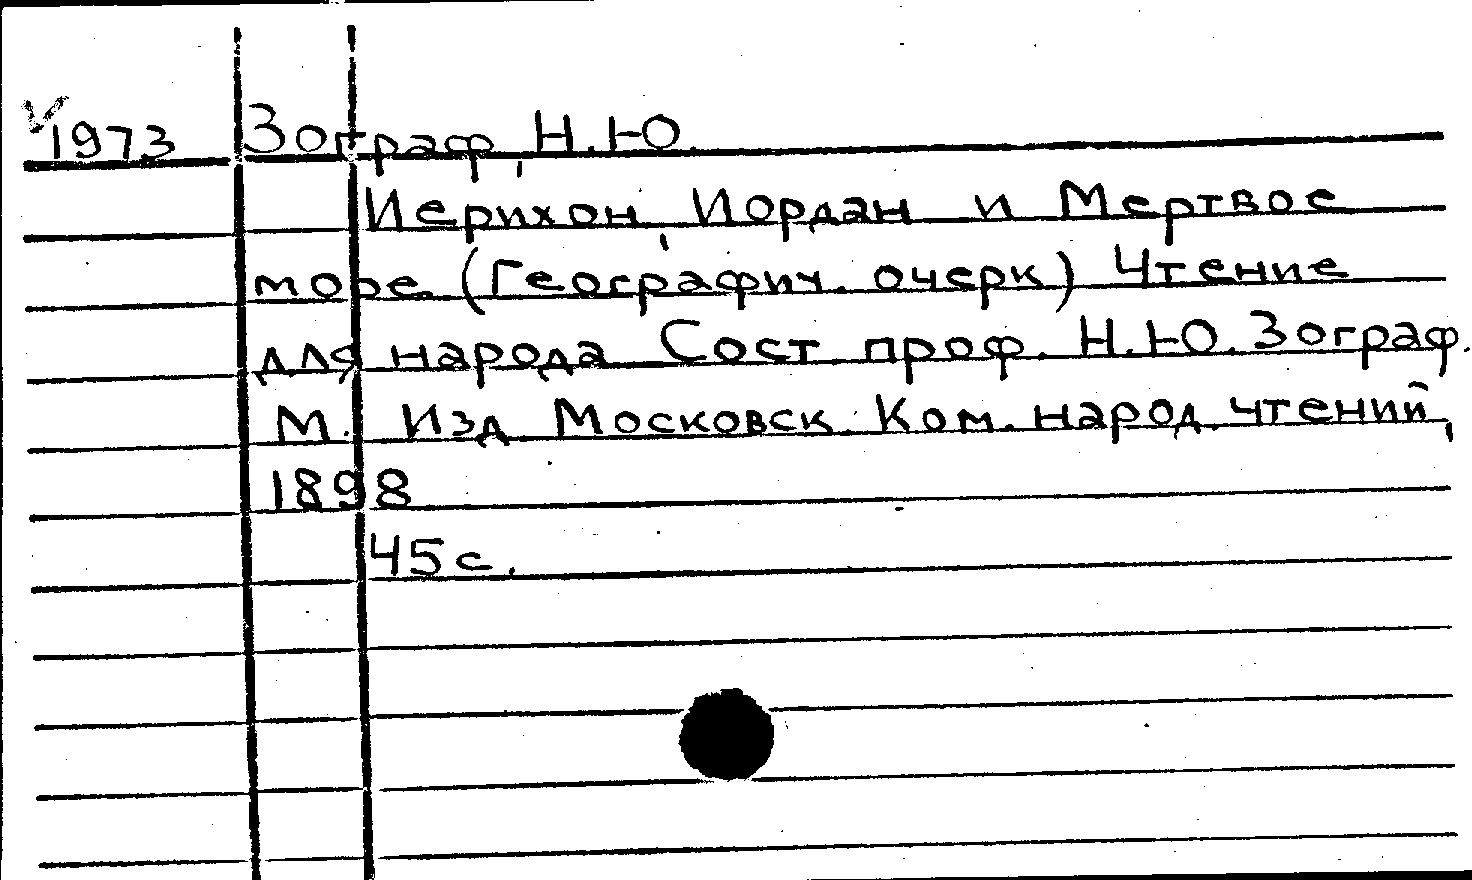 1973 Зограф, Н.Ю.
Иерихон, Иордан и Мертвое
море. (Географич. очерк) Чтение
для народа Сост проф. Н.Ю. Зограф.
М. Изд Московск. Ком. народ. чтений,
1898
45 с.